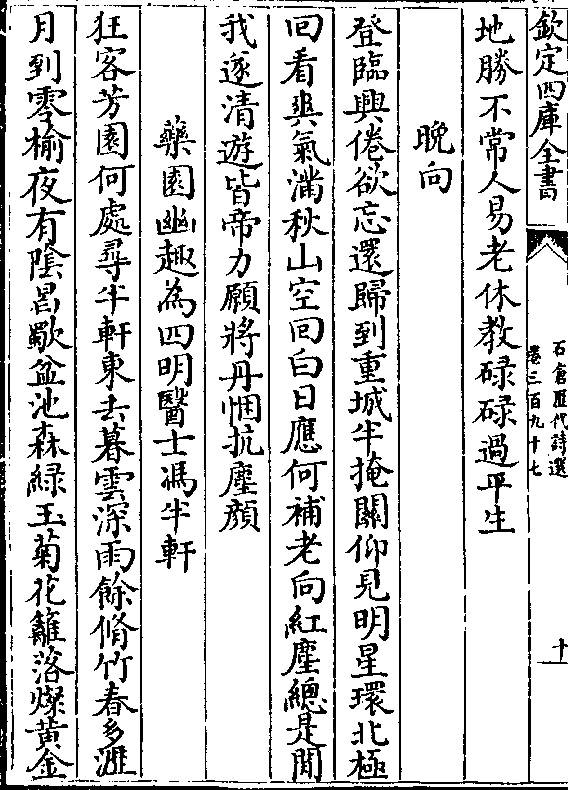 欽定四庫全書
石倉歷代詩選
卷三百九十七
十
地勝不常人易老休教碌碌過平生
晚向
登臨興倦欲忘還歸到重城半掩關仰見明星環北極
回看與氣滿秋山空回白日應何補老向紅塵總是閒
我遂清遊皆帝力願將丹悃抗塵顔
藥園幽趣為四明醫士馮半軒
狂客芳園何處尋半軒東去暮雲深雨餘脩竹春多灑
月到零榆夜有陰昌歜盆池森緑玉菊花籬落燦黄金